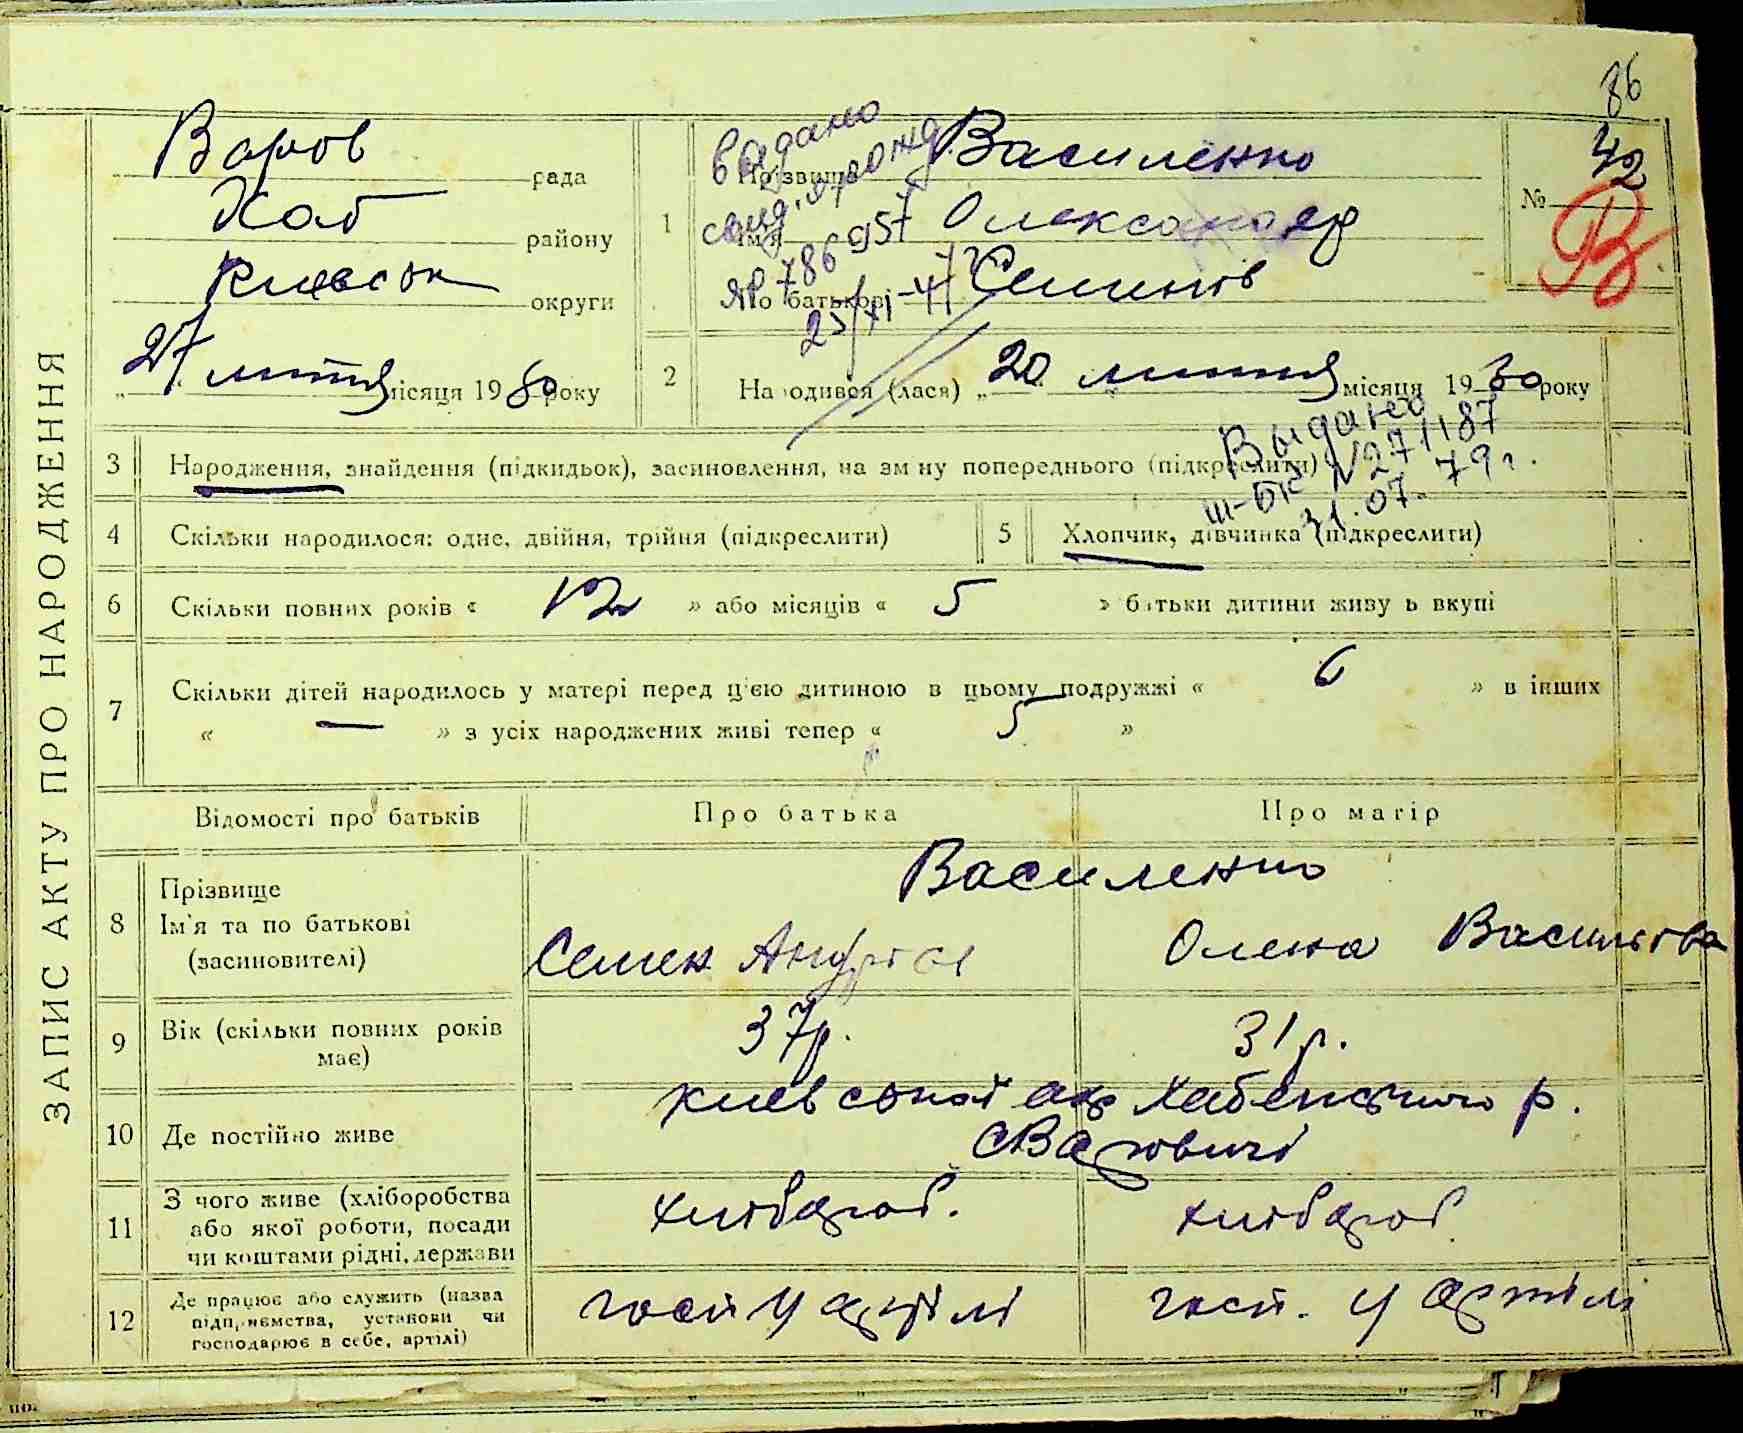 86
ЗАПИС АКТУ ПРО НАРОДЖЕННЯ
Варов рада
Хаб району
Киевськ округи
„27 лютня місяця 1930 року
1
Прізвище Василенко
Ім'я Олександр
По батькові Семенів
№ 42
В
видано
свид. о рожд
ЯР 786957
23/XI-47 г
2 Народився (лася) „20 лютня місяця 1930 року
Выдано
III-БК N271187
31.07.79г.
3 Народження, знайдення (підкидьок), засиновлення, на зміну попереднього (підкреслити)
4 Скільки народилося: одне, двійня, трійня (підкреслити)
5 Хлопчик, дівчинка (підкреслити)
6 Скільки повних років « 12 » або місяців « 5 » батьки дитини живуть вкупі
7 Скільки дітей народилось у матері перед цією дитиною в цьому подружжі « 6 » в інших
« — » з усіх народжених живі тепер « 5 »
Відомості про батьків Про батька Про матір
8 Прізвище
Ім'я та по батькові
(засиновителі)
Василенко
Семен Андріїв
Олена Васильова
9 Вік (скільки повних років
має)
37р.
31р.
10 Де постійно живе
Киевської окр Хабенського р.
с Варовичі
11 З чого живе (хліборобства
або якої роботи, посади
чи коштами рідні, держави
хлібороб.
хлібороб
12 Де працює або служить (назва
підприємства, установи чи
господарює в себе, артілі)
госп у артілі
госп. у артілі